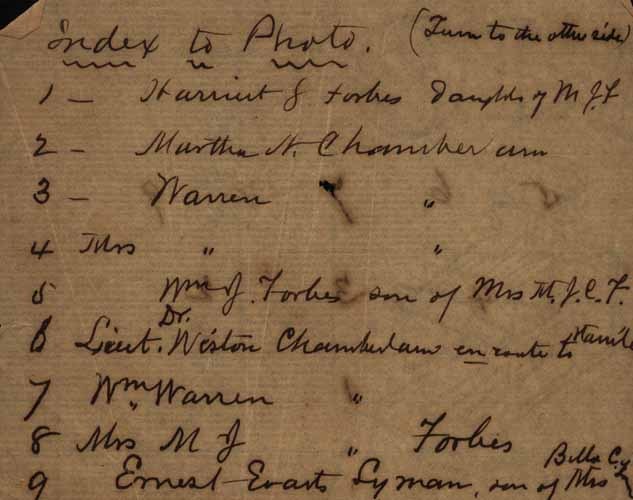 Index to Photo. (Turn to the other side)
1 - Harriet J Forbes daughter of M J F
2 - Martha N. Chamberlain
3 - Warren " "
4 Mrs " "
5 Wm J. Forbes son of Mrs M. J. C. F.
6 Lieut. Dr. Weston Chamberlain en route to Manila
7 Wm Warren "
8 Mrs M J " Forbes
9 Ernest Evarts Lyman, son of Mrs Belle C.